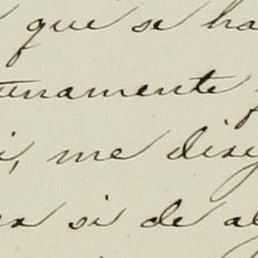 que se ha
unamente
i, me diri
si de al